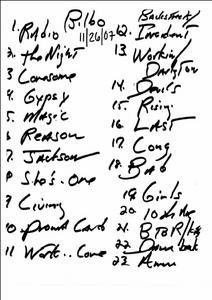 Bilbo
11/26/07
1. RADIO
2. the Night
3 Lonesome
4. Gypsy
5 Magic
6 Reason
7. Jackson
8 She's. One
9 Living
10. Land
11 Work.. Come
Backstreets/
12. Incident
13 Workin/
Darlington
14. Devils
15. Rising
16. LAST
17. Long
18. BAD
19. Girls
20. 10th Ave
21. B TO R/
22.
23. Amer